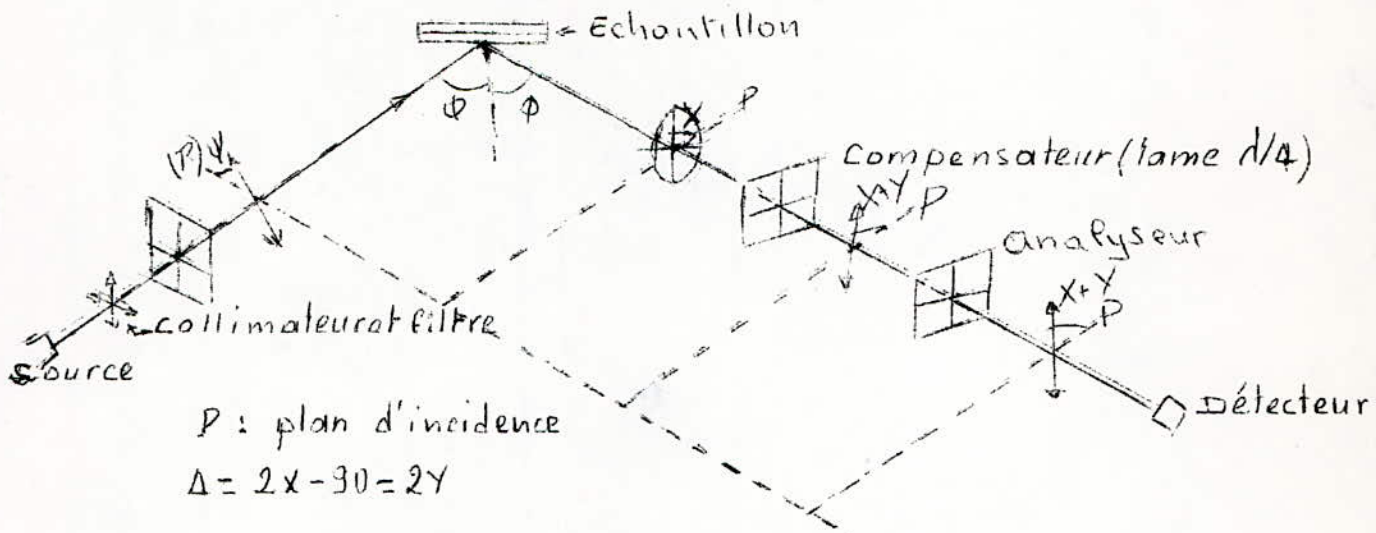 Echantillon
Φ Φ
X P
(P) Ψ
Compensateur (lame λ/4)
X+Y
P
analyseur
X+Y
P
collimateur et filtre
source
Détecteur
P : plan d'incidence
Δ = 2X - 90 = 2Y